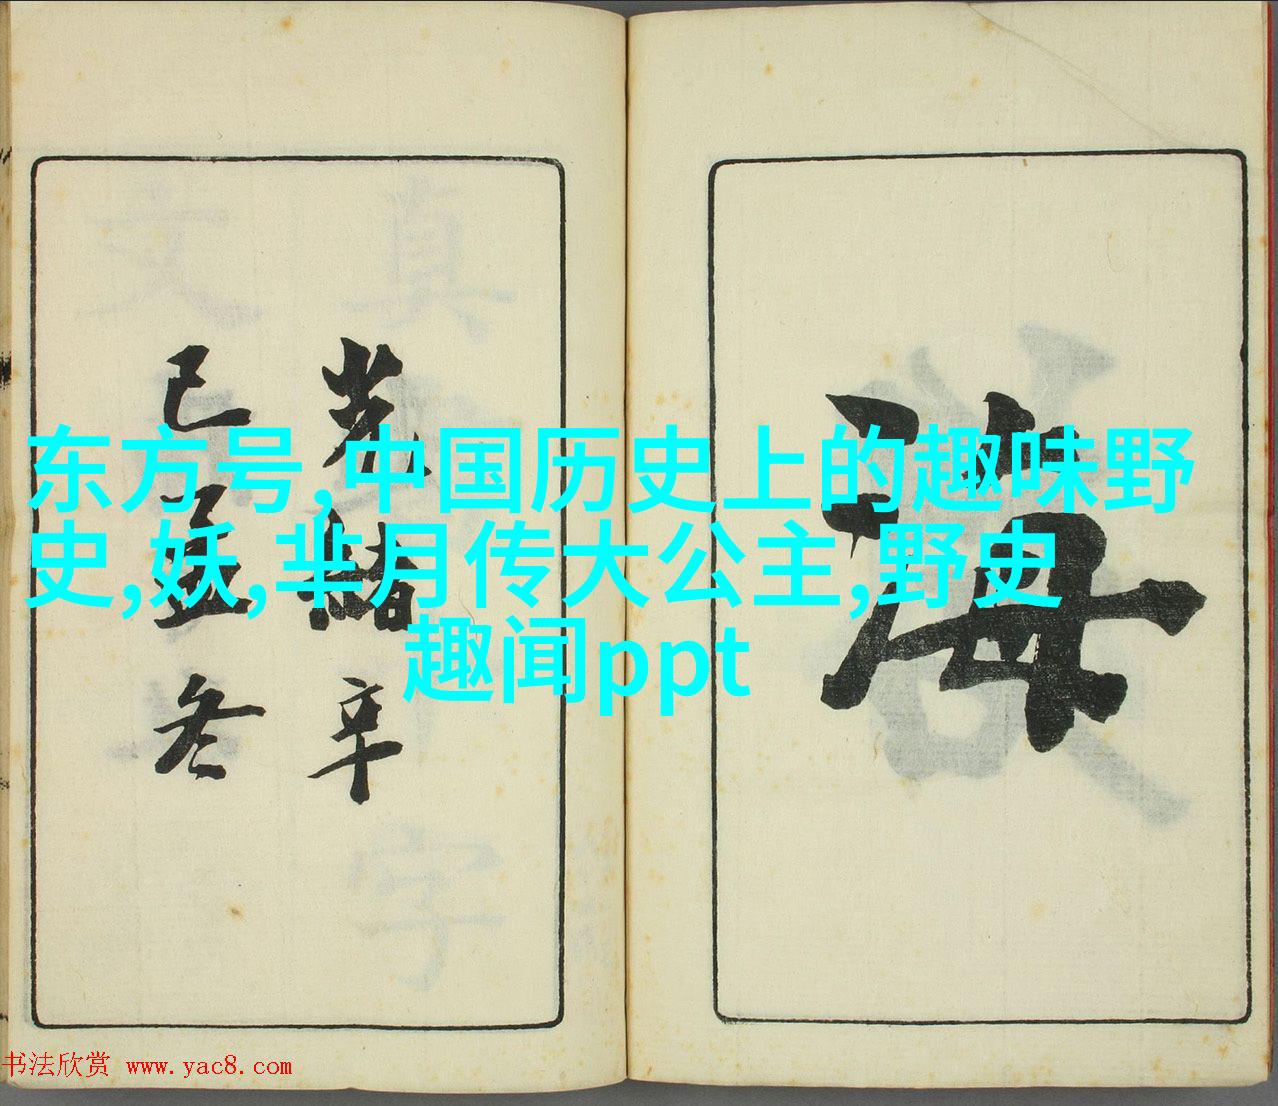 东方号,中国历史上的趣味野
史,妖,芈月传大公主,野史
趣闻ppt
海
光绪辛
已孟冬
书法欣赏 www.yac8.com